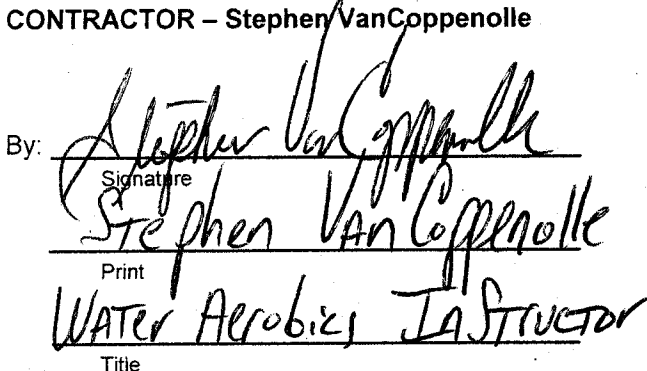 CONTRACTOR – Stephen VanCoppenolle
By: Stephen VanCoppenolle
Signature
Stephen VanCoppenolle
Print
Water Aerobics Instructor
Title